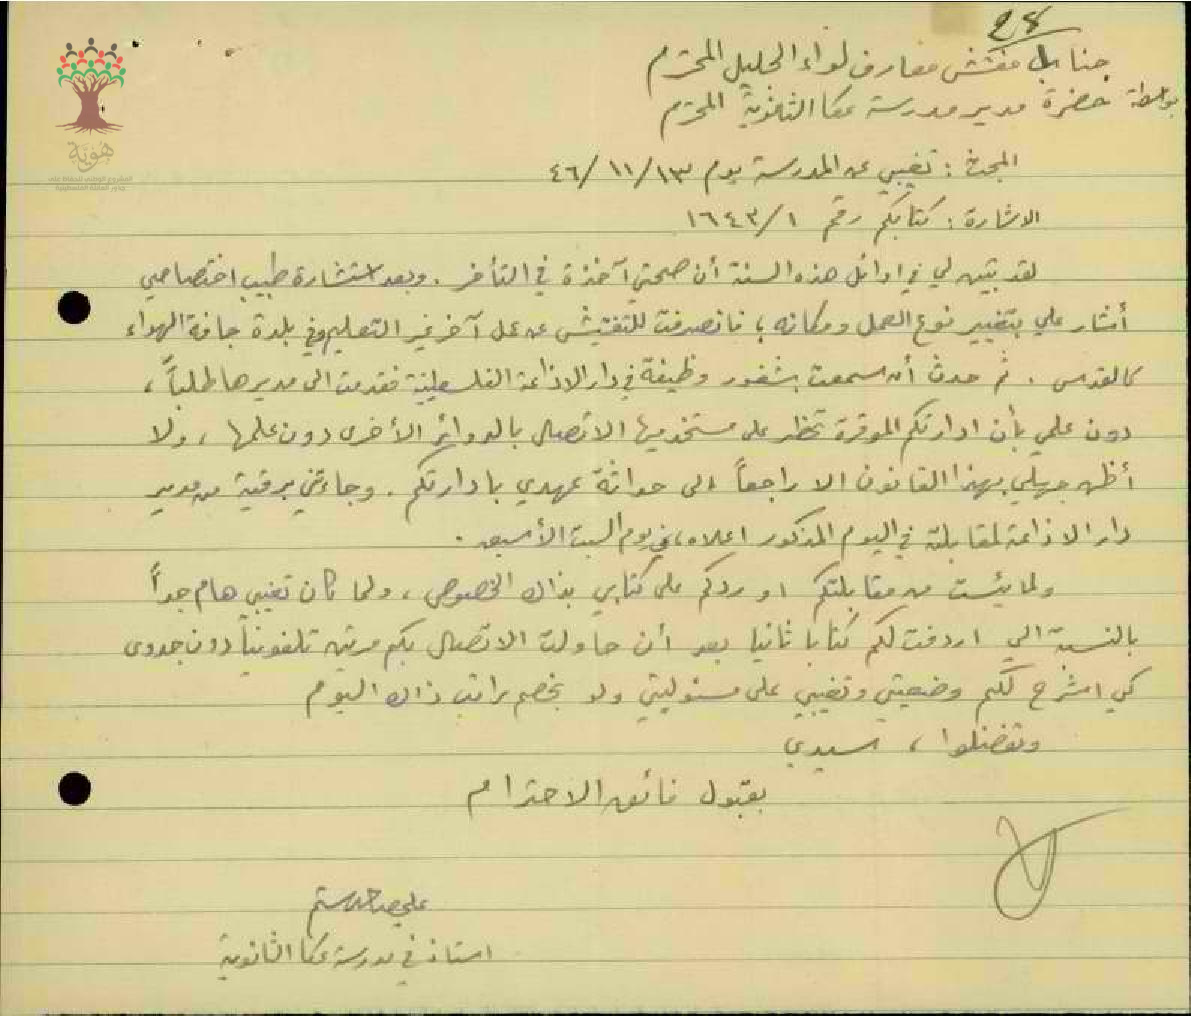 28
جناب مفتش معارف لواء الجليل المحترم
بواسطة حضرة مدير مدرسة عكا الثانوية المحترم
المبحث : تغيبي عن المدرسة يوم ١٣/١١/٤٦
الاشارة : كتابكم رقم ١٦٤٣/١
لقد تبين لي في اوائل هذه السنة أن صحتي آخذة في التأخر . وبعد استشارة طبيب اختصاصي
أشار علي بتغيير نوع العمل ومكانه ؛ فانصرفت للتفتيش عن عمل آخر غير التعليم وفي بلدة جافة الهواء
كالقدس . ثم حدث أن سمعت بشغور وظيفة في دار الاذاعة الفلسطينية فقدمت الى مديرها طلباً ،
دون علمي بأن ادارتكم الموقرة تحظر على مستخدميها الاتصال بالدوائر الأخرى دون علمها ، ولا
أظن جهلي بهذا القانون الا راجعاً الى حداثة عهدي بادارتكم . وجاءتني برقية من مدير
دار الاذاعة لمقابلته في اليوم المذكور اعلاه، في يوم السبت الأسبق .
ولما يئست من مقابلتكم او ردكم على كتابي بذاك الخصوص ، ولما كان تغيبي هام جداً
بالنسبة الي اردفت لكم كتابا ثانيا بعد أن حاولت الاتصال بكم مرتين تلفونياً دون جدوى
كي اشرح لكم وضعيتي وتغيبي على مسئوليتي ولا يخصم راتب ذاك اليوم
وتفضلوا ، سيدي
بقبول فائق الاحترام
علي
استاذ في مدرسة عكا الثانوية
هُوِيَّة
المشروع الوطني للحفاظ على
جذور العائلة الفلسطينية